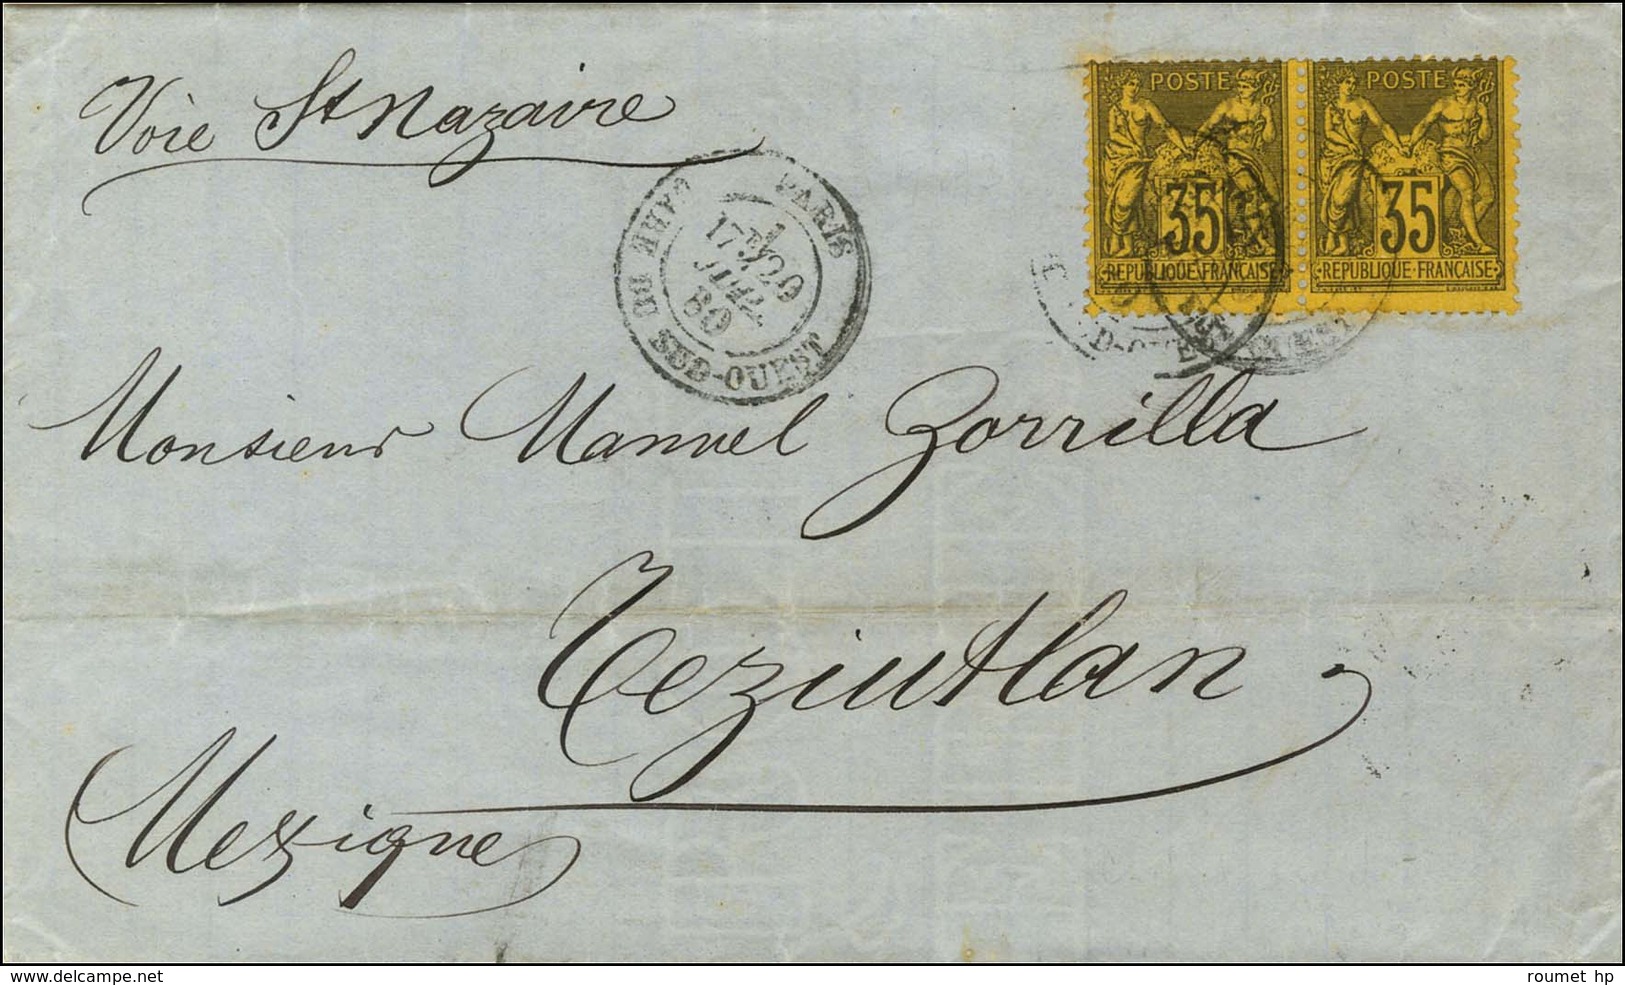 Voie St Nazaire
POSTE POSTE
35 35
REPUBLIQUE FRANCAISE REPUBLIQUE FRANCAISE
PARIS
GARE DU SUD-OUEST
20
JUIL
80
Monsieur Manuel Zorrilla
Teziutlan
Mexique
www.delcampe.net
roumet hp